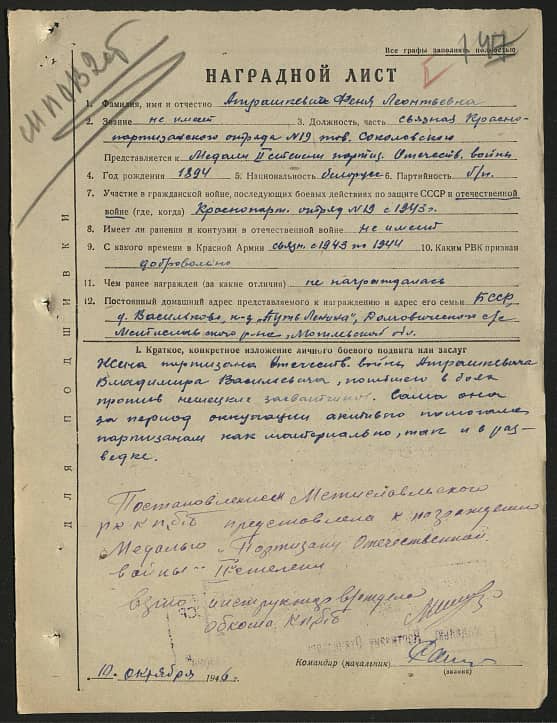 Все графы заполнять полностью
147
МПОВ 2 ст
НАГРАДНОЙ ЛИСТ
1. Фамилия, имя и отчество Атрашкевич Феня Леонтьевна
2. Звание не имеет 3. Должность, часть связная Красно-
партизанского отряда №19 тов. Соколовского
Представляется к Медали II степени партиз. Отечеств. войны
4. Год рождения 1894 5. Национальность белорус 6. Партийность б/п.
7. Участие в гражданской войне, последующих боевых действиях по защите СССР и отечественной
войне (где, когда) Краснопарт. отряд №19 с 1943 г.
8. Имеет ли ранения и контузии в отечественной войне не имеет
9. С какого времени в Красной Армии связн. с 1943 по 1944 10. Каким РВК призван
добровольно
11. Чем ранее награжден (за какие отличия) не награждалась
12. Постоянный домашний адрес представляемого к награждению и адрес его семьи БССР
д. Васильково, к-д „Путь Ленина", с/с
Мстиславского р-на, Могилевской обл.
I. Краткое, конкретное изложение личного боевого подвига или заслуг
Жена партизана Отечеств. войны Атрашкевича
Владимира Васильевича, погибшего в боях
против немецких захватчиков. Сама она
за период оккупации активно помогала
партизанам как материально, так и в раз-
ведке.
Постановлением Мстиславльского
РК КПбБ представлена к награждению
Медалью „Партизану Отечественной
войны" II степени
инструктор
Обкома КПбБ
Командир (начальник)
(звание)
10. октября 1946 г.
ДЛЯ ПОДШИВКИ